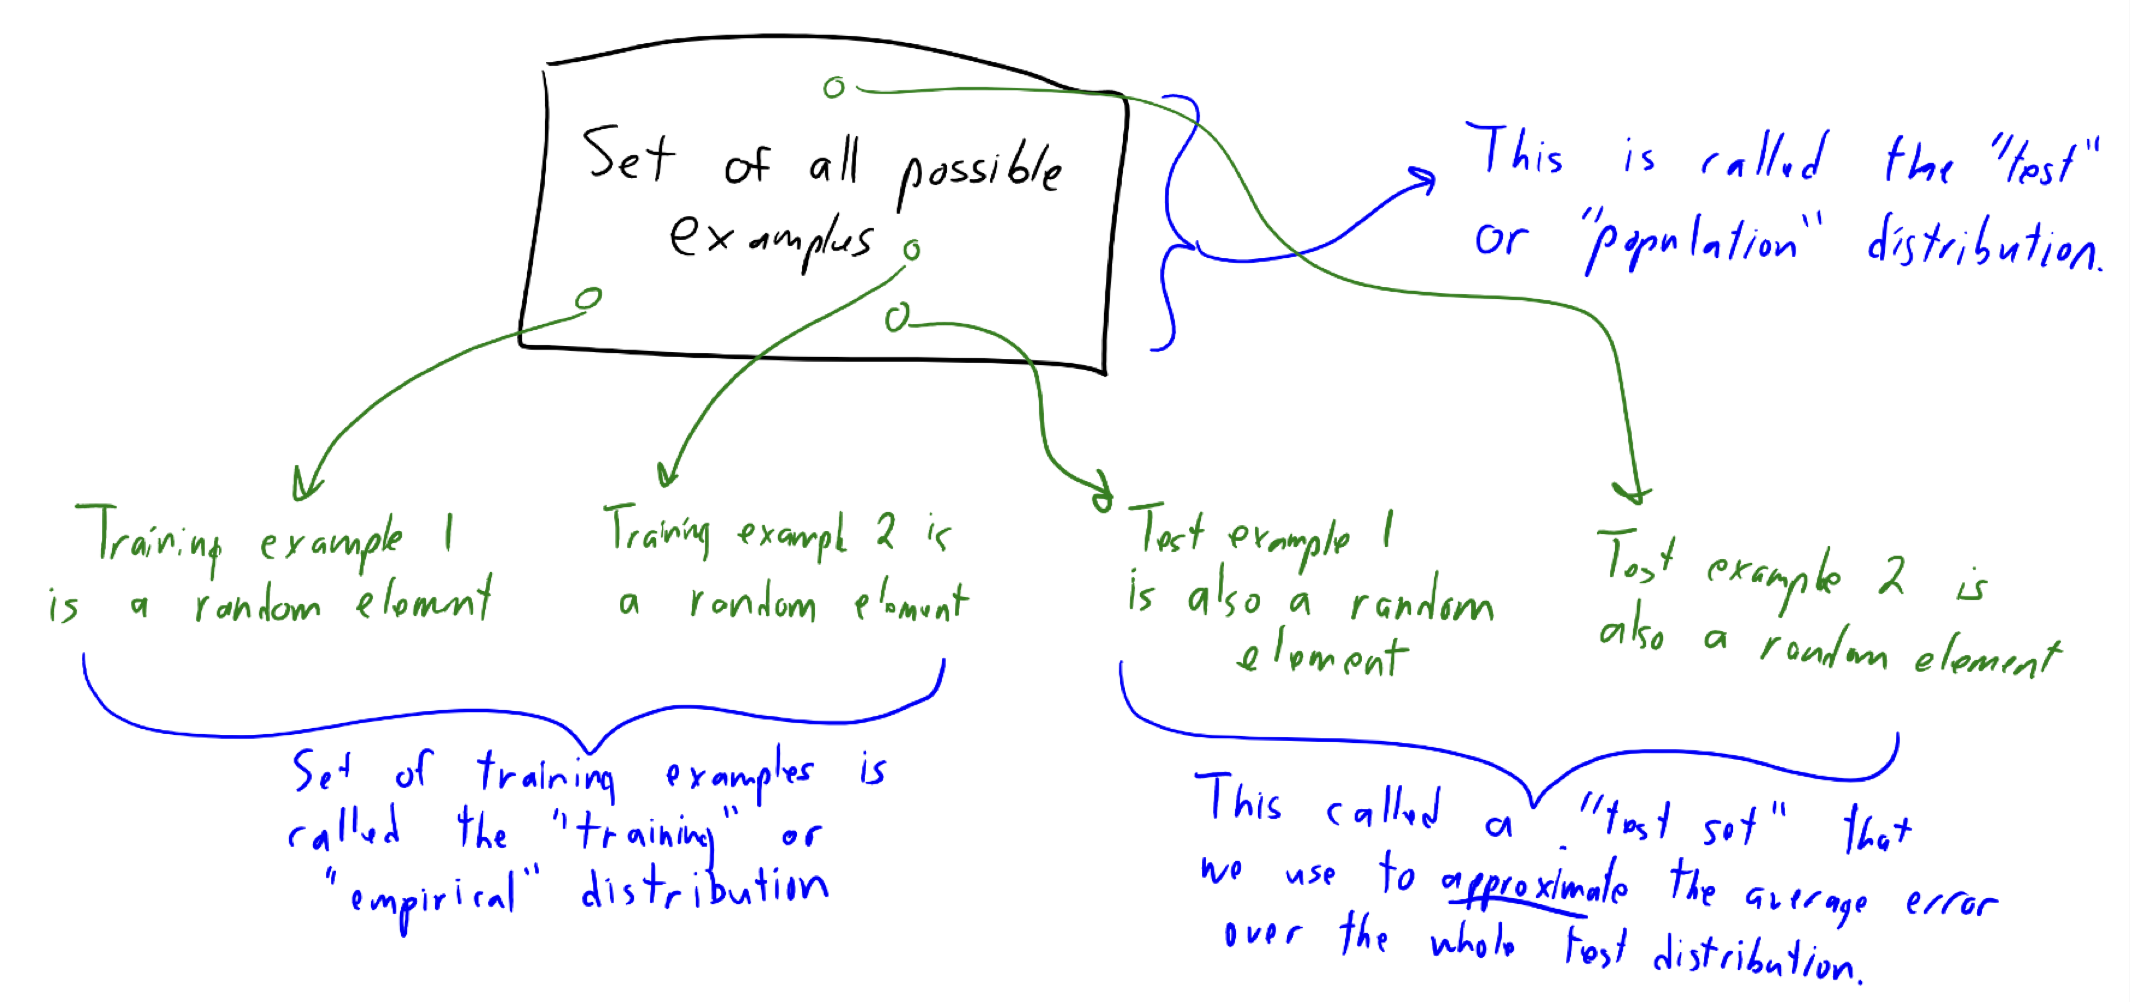 Set of all possible
examples
This is called the "test"
or "population" distribution.
Training example 1
is a random element
Training exampl 2 is
a random element
Test example 1
is also a random
element
Test example 2 is
also a random element
Set of training examples is
called the "training" or
"empirical" distribution
This called a "test set" that
we use to approximate the average error
over the whole test distribution.